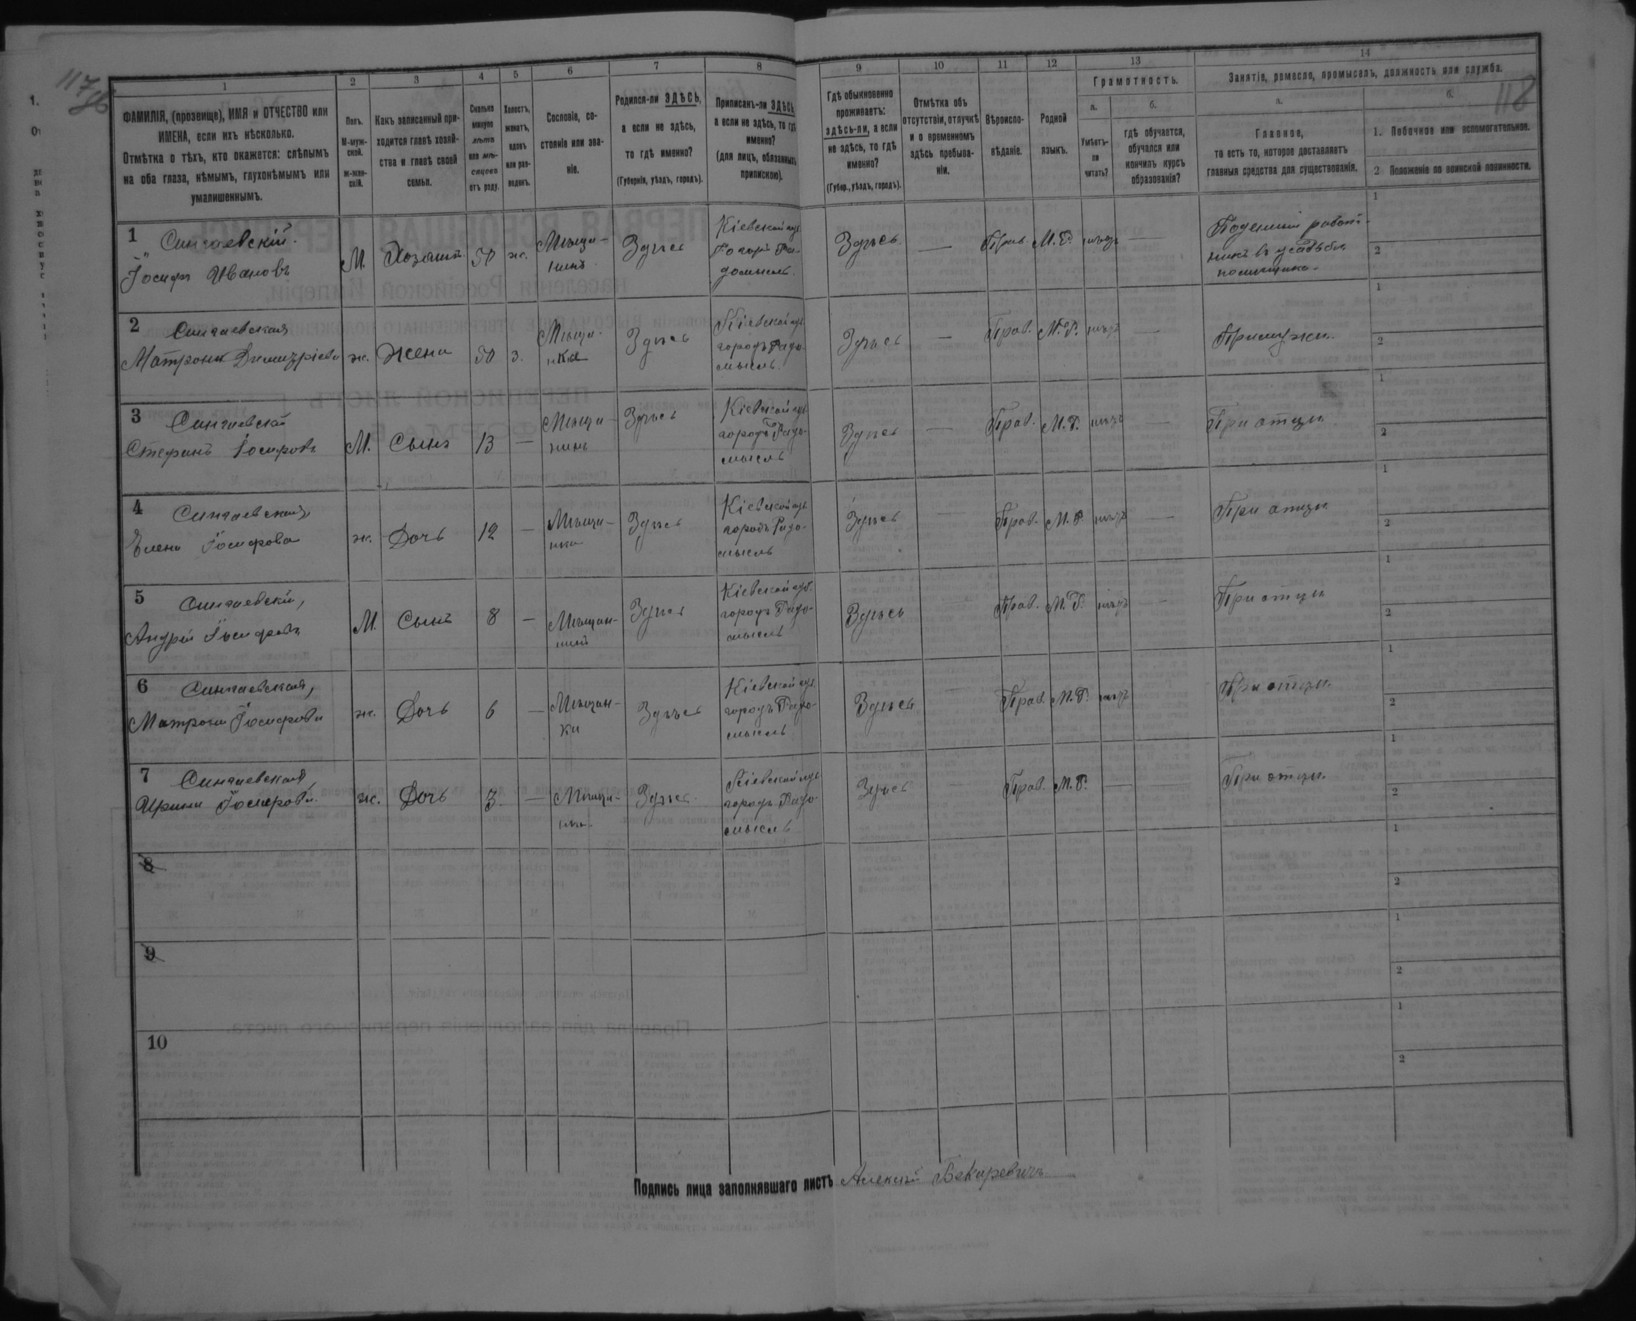 117об
118
1 2 3 4 5 6 7 8 9 10 11 12 13 14
ФАМИЛІЯ, (прозвище), ИМЯ и ОТЧЕСТВО или
ИМЕНА, если ихъ нѣсколько.
Отмѣтка о тѣхъ, кто окажется: слѣпымъ
на оба глаза, нѣмымъ, глухонѣмымъ или
умалишеннымъ.
Полъ.
М-муж-
ской.
ж-жен-
скій.
Какъ записанный при-
ходится главѣ хозяй-
ства и главѣ своей
семьи.
Сколько
минуло
лѣтъ
или мѣ-
сяцевъ
отъ роду.
Холостъ,
женатъ,
вдовъ
или раз-
веденъ.
Сословіе, со-
стояніе или зва-
ніе.
Родился-ли ЗДѢСЬ,
а если не здѣсь,
то гдѣ именно?
(Губернія, уѣздъ, городъ).
Приписанъ-ли ЗДѢСЬ,
а если не здѣсь, то гдѣ
именно?
(для лицъ, обязанныхъ
припискою).
Гдѣ обыкновенно
проживаетъ:
здѣсь-ли, а если
не здѣсь, то гдѣ
именно?
(Губер., уѣздъ, городъ).
Отмѣтка объ
отсутствіи, отлучкѣ
и о временномъ
здѣсь пребыва-
ніи.
Вѣроиспо-
вѣданіе.
Родной
языкъ.
Грамотность.
а.
Умѣетъ-
ли
читать?
б.
гдѣ обучается,
обучался или
кончилъ курсъ
образованія?
Занятіе, ремесло, промыселъ, должность или служба.
а.
Главное,
то есть то, которое доставляетъ
главныя средства для существованія.
б.
1. Побочное или вспомогательное.
2 Положеніе по воинской повинности.
1 Сингаевскій
Іосифъ Ивановъ
М. Хозяинъ 50 ж. Мѣща-
нинъ
Здѣсь
Кіевской губ
городъ Ра-
домысль
Здѣсь — Прав М. Р. нѣтъ —
Поденный работ-
никъ въ усадьбѣ
помѣщика.
1
2
2 Сингаевская
Матрона Димитріева
ж. Жена 50 з. Мѣща-
нка
Здѣсь
Кіевской губ
городъ Радо-
мысль
Здѣсь — Прав. М. Р. нѣтъ —
При мужѣ
1
2
3 Сингаевскій
Стефанъ Іосифовъ
М. Сынъ 13 — Мѣща-
нинъ
Здѣсь
Кіевской губ
городъ Радо-
мысль
Здѣсь — Прав. М. Р. нѣтъ —
При отцѣ
1
2
4 Сингаевская
Елена Іосифова
ж. Дочь 12 — Мѣща-
нка
Здѣсь
Кіевской губ
городъ Радо-
мысль
Здѣсь — Прав. М. Р. нѣтъ —
При отцѣ
1
2
5 Сингаевскій,
Андрей Іосифовъ
М. Сынъ 8 — Мѣщан-
нинъ
Здѣсь
Кіевской губ.
городъ Радо-
мысль
Здѣсь Прав. М. Р. нѣтъ —
При отцѣ
1
2
6 Сингаевская,
Матрона Іосифова
ж. Дочь 6 — Мѣщан-
ка
Здѣсь
Кіевской губ
городъ Радо-
мысль
Здѣсь Прав. М. Р. нѣтъ
При отцѣ.
1
2
7 Сингаевская
Ирина Іосифова.
ж. Дочь 3. — Мѣща-
нка
Здѣсь
Кіевской губ
городъ Радо-
мысль
Здѣсь Прав. М. Р. —
При отцѣ.
1
2
8
1
2
9
1
2
10
1
2
Подпись лица заполнявшаго листъ Алексѣй Бекаревичъ